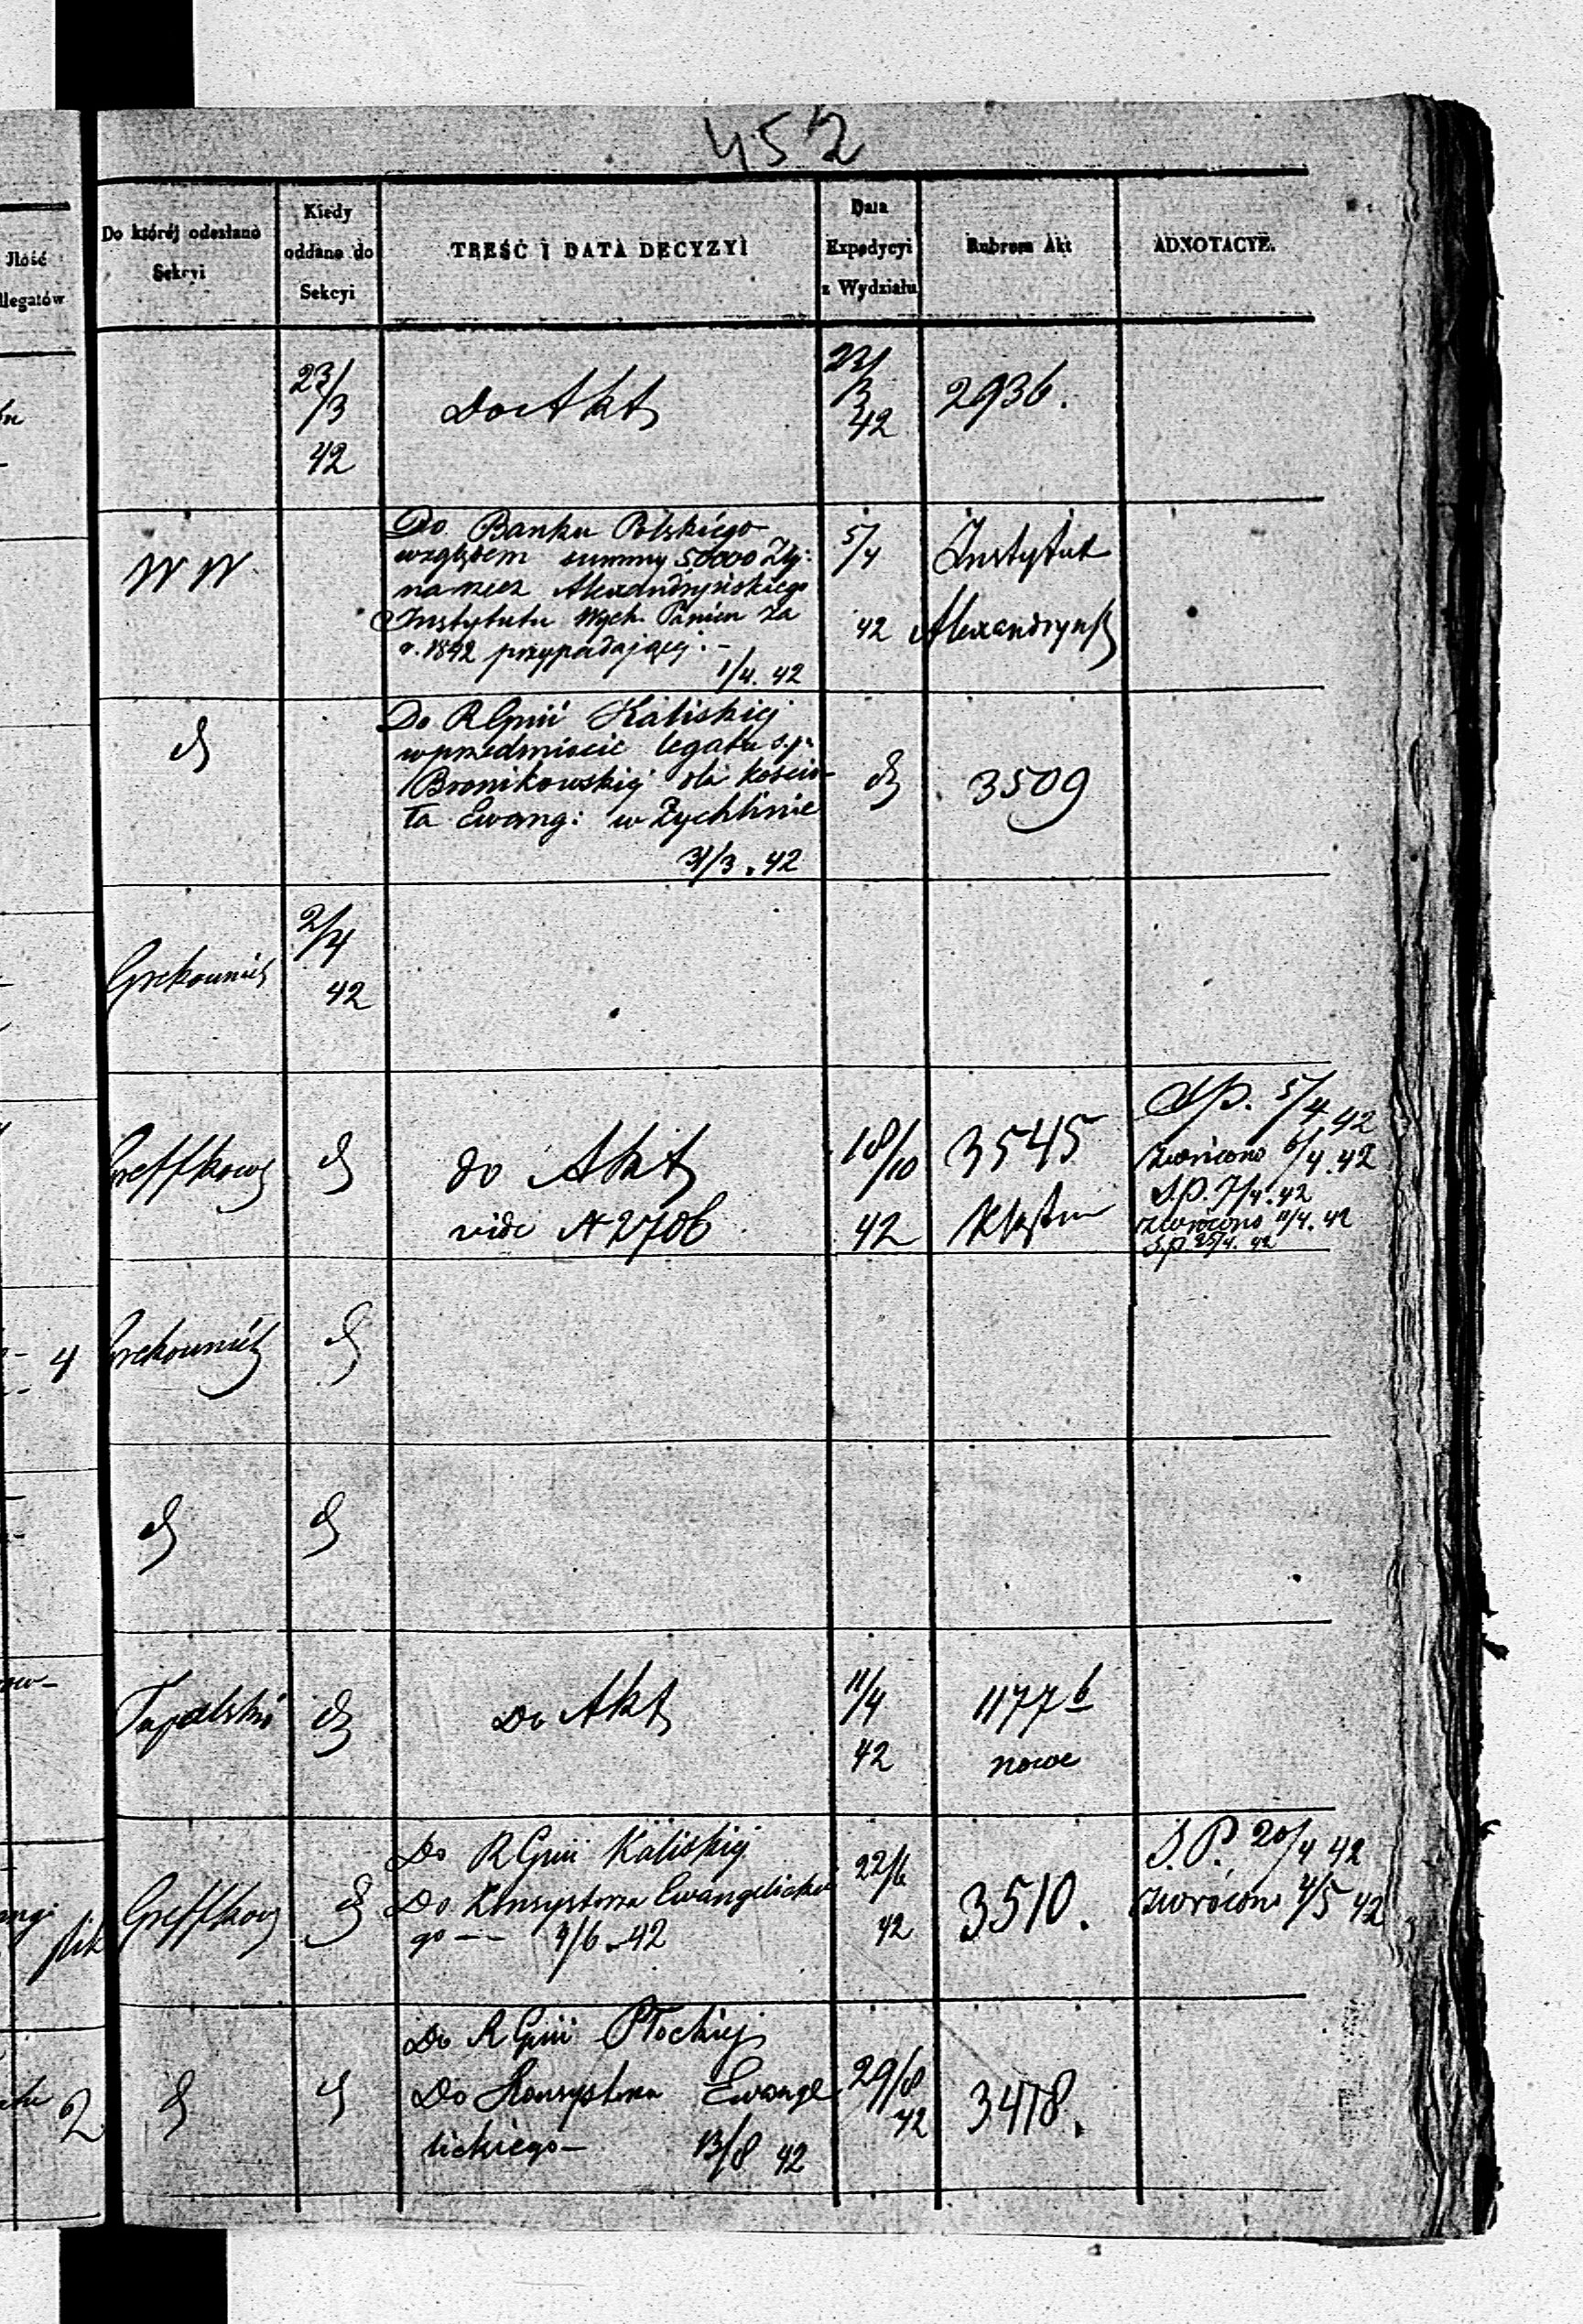 452
Jlość
llegatów
Do któréj odesłano
Sekcyi
Kiedy
oddano do
Sekcyi
TREŚĆ I DATA DECYZYI
Data
Expedycyi
z Wydziału
Rubrum Akt
ADNOTACYE.
23/3
42
Do Akt
23/3
42
2936.
W W
Do Banku Polskiego
względem summy 50000 Złp:
na rzecz Alexandryńskiego
Instytutu Wych. Panien za
r. 1842 przypadającej. -
1/4. 42
5/4
42
Instytut
Alexandryńsk
Do RGnii Kaliskiej
w przedmiocie legatu s.p.
Bronikowskiej dla kościo-
ła Ewang: w Żychlinie
31/3. 42
3509
2/4
42
do Akt
vide N 2706
18/10
42
3545
S.P. 5/4 42
zwrócono 6/4. 42
S.P. 7/4. 42
zwrócono 11/4. 42
S.P. 25/4. 42
4
Do Akt
11/4
42
1177 b
nowe
Greffkow
Do RGnii Kaliskiej
Do Konsystorza Ewangelickie
go — 4/6. 42
22/6
42
3510.
S.P. 20/4 42
zwrócono 4/5 42
2
Do RGnii Płockiej
Do Konsystorza Ewange
lickiego — 13/8 42
29/8
42
3478.